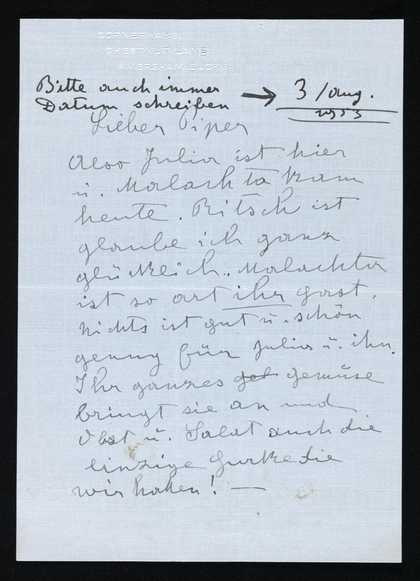 CORNERWAYS
CHESTNUT LANE
AMERSHAM, BUCKS
Bitte auch immer → 3/aug.
Datum schreiben 1953
Lieber Piper
Also Julia ist hier
u. Malachta kam
heute. Ritsch ist
glaube ich ganz
glücklich. Malachta
ist so art ihr gast.
Nichts ist gut u. schön
genug für Julia u. ihn.
Ihr ganzes gemüse
bringt sie an und
Obst u. Salat auch die
einzige Gurke die
wir haben! —